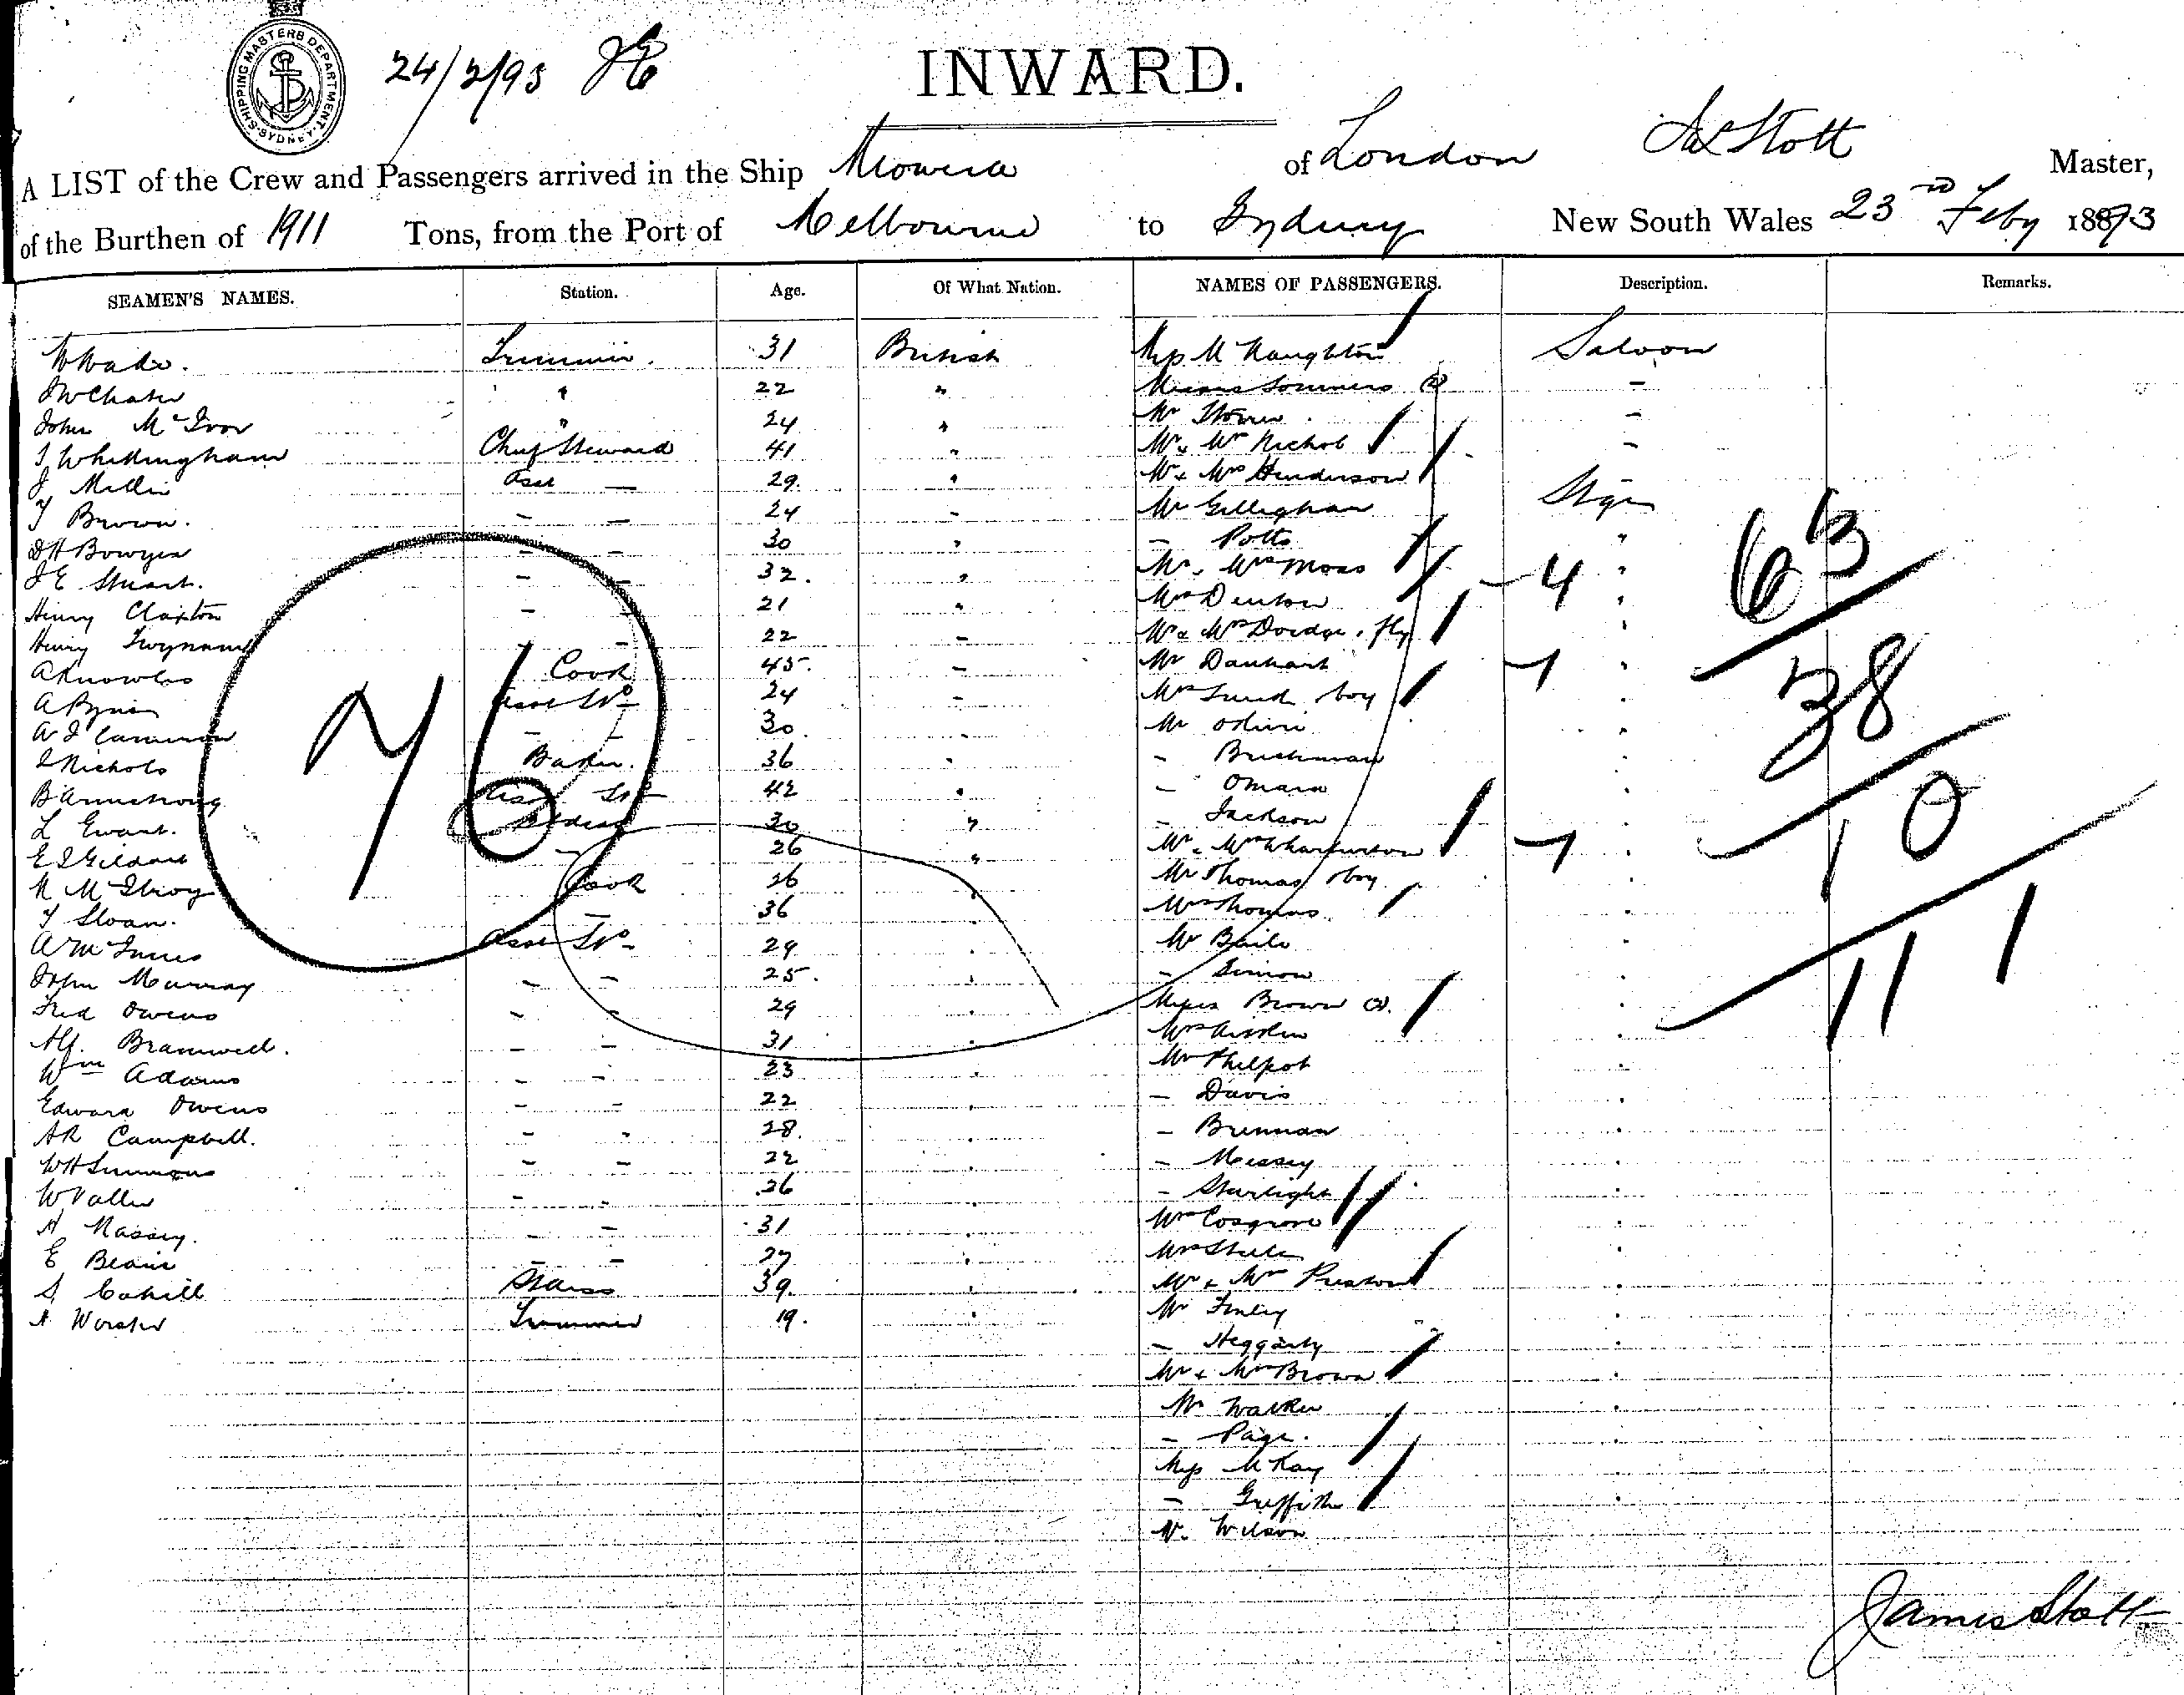 SHIPPING MASTERS DEPARTMENT. SYDNEY.
24/2/93
INWARD.
A LIST of the Crew and Passengers arrived in the Ship Mowera of London Jas Stott Master,
of the Burthen of 1911 Tons, from the Port of Melbourne to Sydney New South Wales 23rd Feby 1893
SEAMEN'S NAMES. Station. Age. Of What Nation. NAMES OF PASSENGERS. Description. Remarks.
W Wade. Trimmer. 31 British Miss McNaughton Saloon
22 " Misses Sommers (2) -
John McIvor " 24 " Mr -
J Whittingham Chief Steward 41 " Mr & Mrs Nichol -
J Asst — 29. " Mr & Mrs Henderson
T Brown. - — 24 - Mr Gillighan Stge
D H Bowyer - - 30 " - Potts "
J E Stuart. - - 32. " Mr & Mrs Moss 4 "
Henry Claxton - - 21 " Mrs Denton
Henry Twynam - 22 - Mr & Mrs Dordge & fly
A Knowles Cook 45. - Mr Danhart
A Asst Sd 24 - Mrs Lund & boy
A J Cameron - - 30. Mr
J Nichols Baker. 36 - Bushman
B Armstrong Asst Sd 42 - Omara
L Ewart. 30 " - Jackson
E J Gildart - 26 " Mr & Mrs
McIlroy Cook 26 Mr Thomas & boy
T Sloan. - 36 Mrs Thomas
A McInnes Asst Sd 29 Mr
John Murray - - 25. - Simon
Fred Owens - - 29 Misses Brown (2).
Alf. Bramwell. - - 31 Mrs Aitken
Wm Adams - - 23 Mr Philpot
Edward Owens - - 22 - Davis
A R Campbell. - - 28. - Brennan
W H Simmons - - 22 - Massey
W Valler - - 26 - Starlight
A Massey. - 31 Mrs Cosgrove
E - - 27 Mrs Steele
S Cahill Stdess 39. Mr & Mrs Preston
A Trimmer 19. Mr Finley
- Heggarty
Mr & Mrs Brown
Mr Walker
- Page.
Miss McKay
- Griffith
Mr Wilson
71
63
38
10
111
James Stott